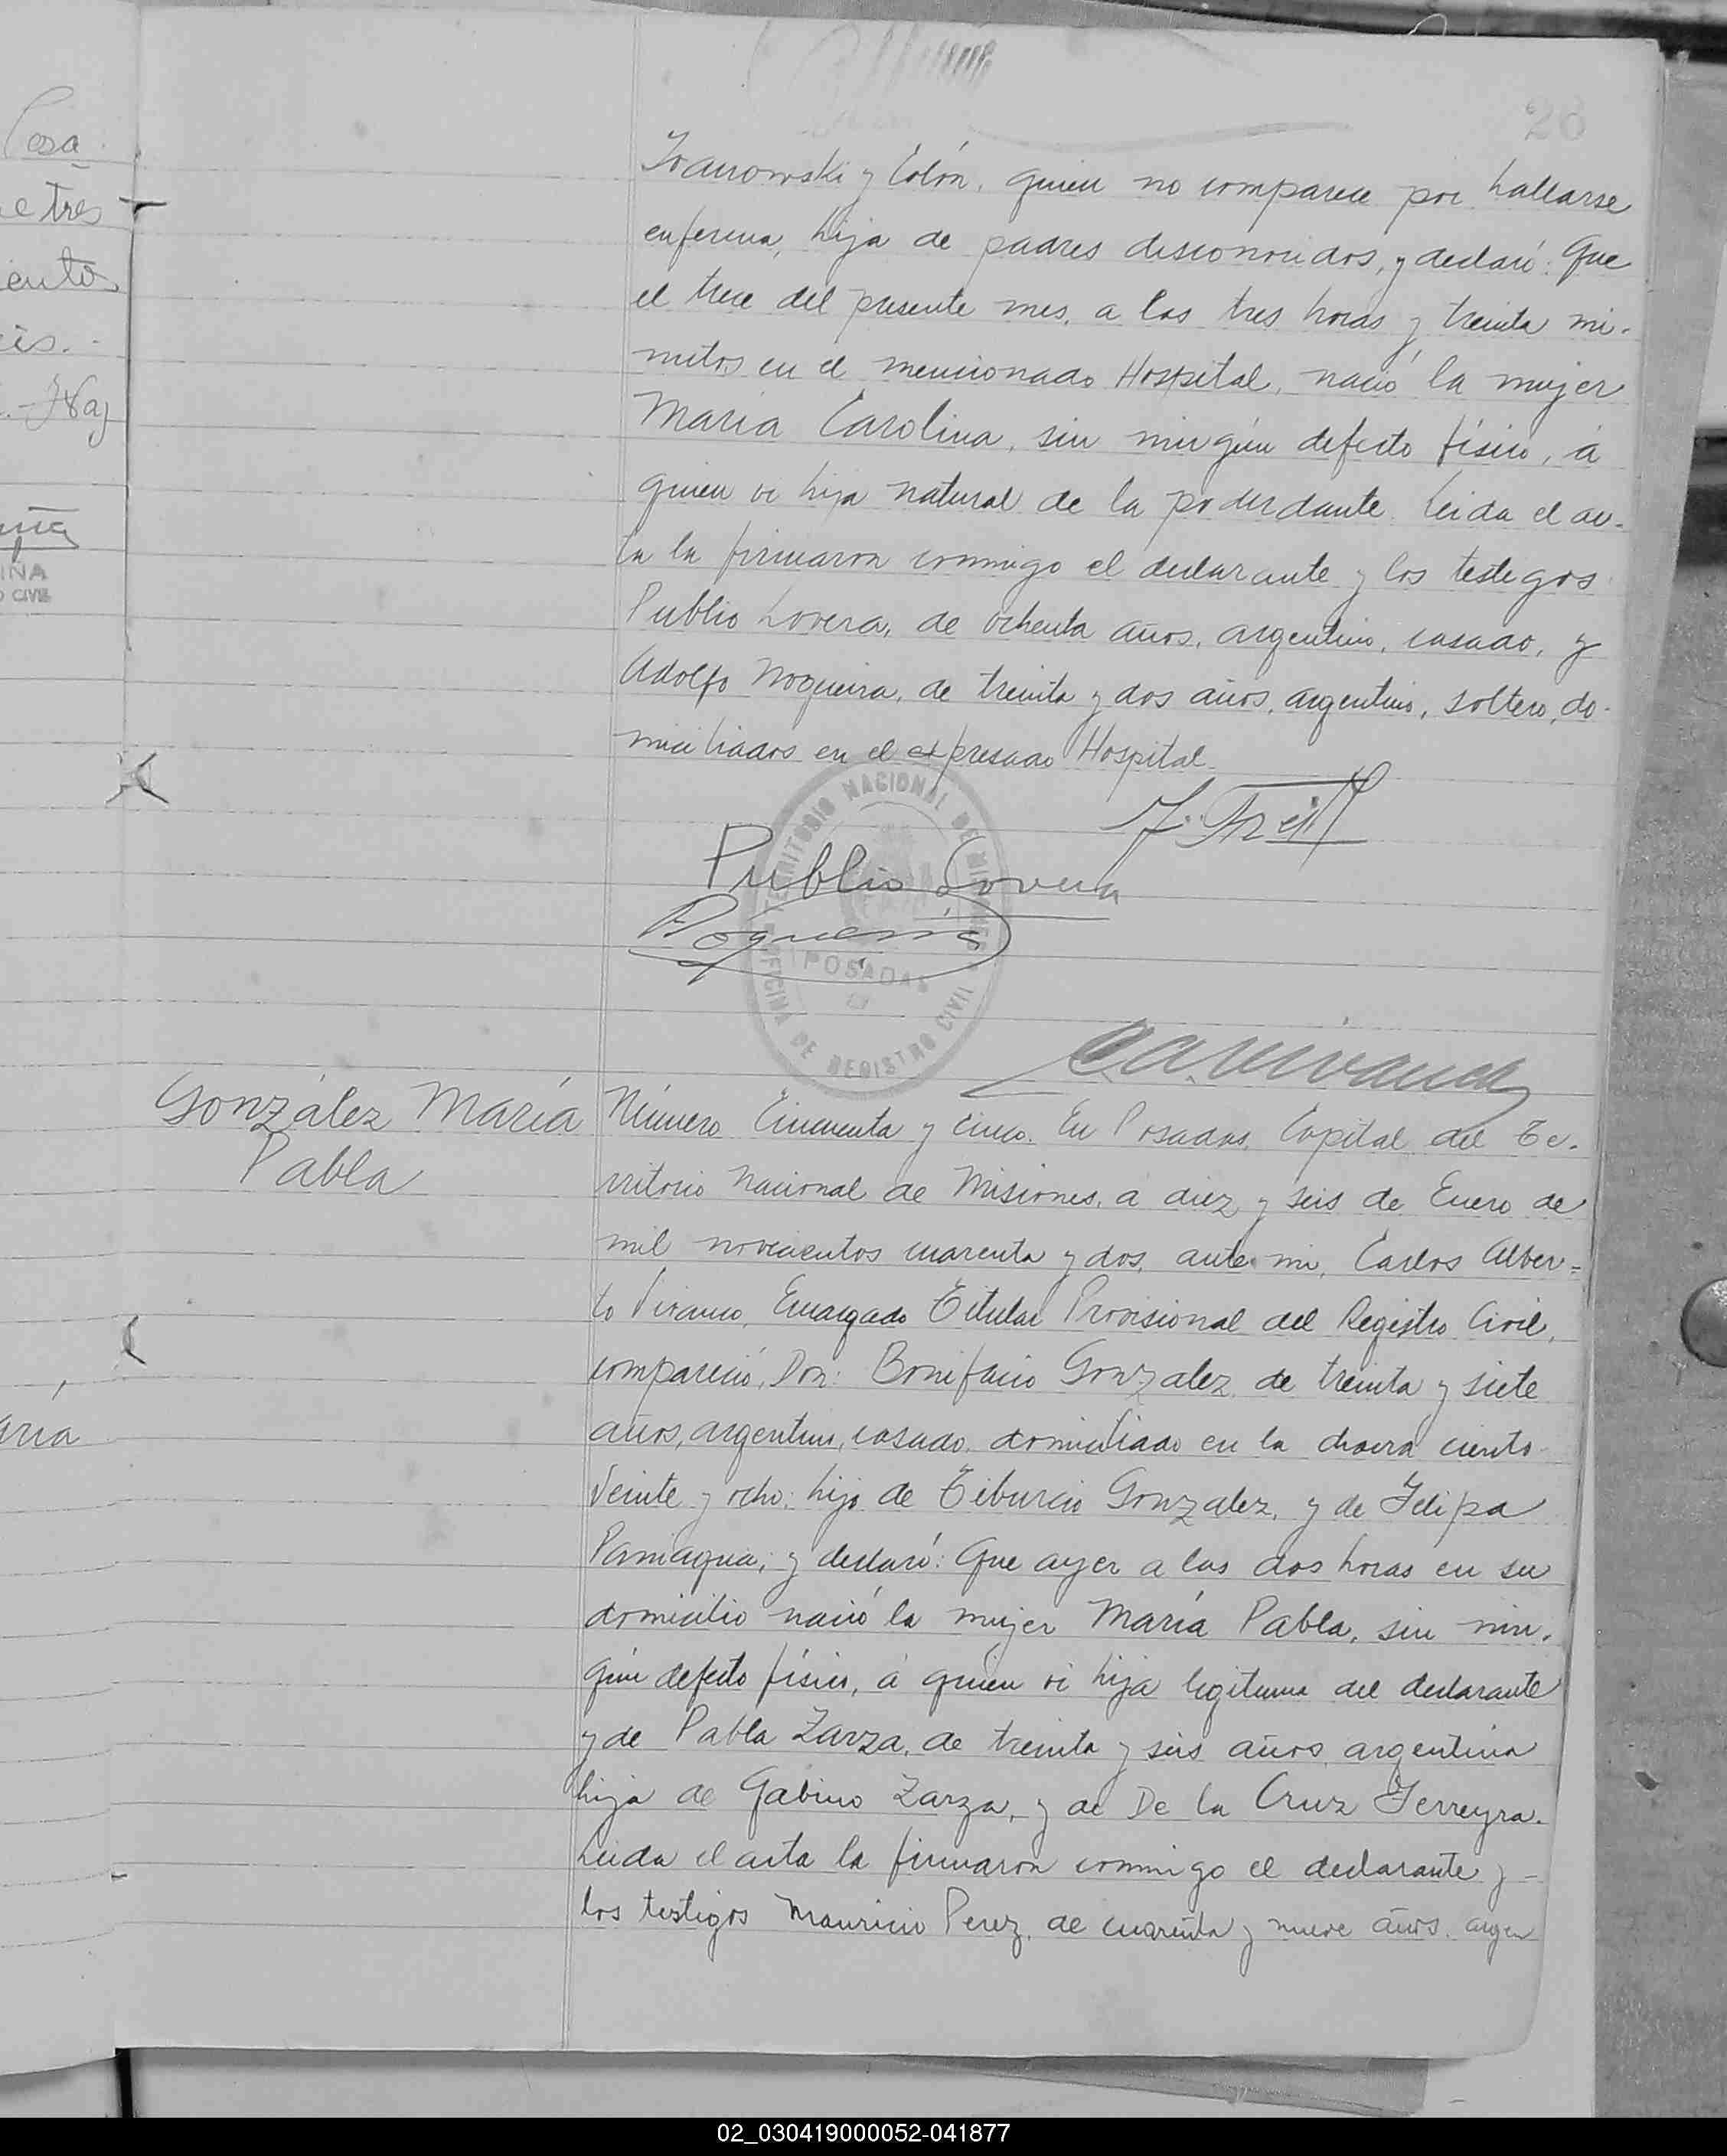 26
Iwanowski y Colón, quien no comparece por hallarse
enferma, hija de padres desconocidos, y declaró: Que
el trece del presente mes, a las tres horas y treinta mi-
nutos en el mencionado Hospital, nació la mujer
María Carolina, sin ningún defecto físico, á
quien vi hija natural de la poderdante. Leida el ac-
ta la firmaron conmigo el declarante y los testigos
Publio Lovera, de ochenta años, argentino, casado, y
Adolfo Nogueira, de treinta y dos años, argentino, soltero, do-
miciliados en el expresado Hospital.
Publio Lovera
TERRITORIO NACIONAL DE MISIONES
POSADAS
OFICINA DE REGISTRO CIVIL
González María
Pabla
Número Cincuenta y cinco. En Posadas, Capital del Te-
rritorio Nacional de Misiones, a diez y seis de Enero de
mil novecientos cuarenta y dos, ante mi, Carlos Alber-
to Vivanco, Encargado Titular Provisional del Registro Civil,
compareció, Don: Bonifacio Gonzalez, de treinta y siete
años, argentino, casado, domiciliado en la chacra ciento
veinte y ocho; hijo de Tiburcio Gonzalez, y de Felipa
Paniagua; y declaró: Que ayer a las dos horas en su
domicilio nació la mujer María Pabla, sin nin-
gún defecto físico, á quien vi hija legitima del declarante
y de Pabla Zarza, de treinta y seis años, argentina
hija de Gabino Zarza, y de De la Cruz Ferreyra.
Leida el acta la firmaron conmigo el declarante y -
los testigos Mauricio Perez, de cuarenta y nueve años, argen
02_030419000052-041877